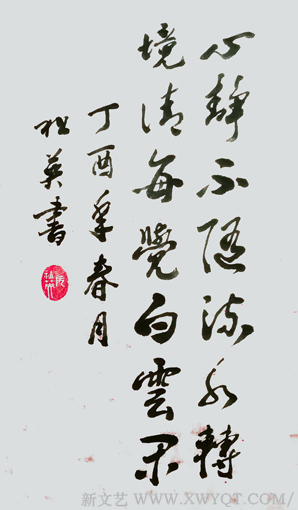 心靜不隨流水轉
境清每覺白雲閑
丁酉年春月
松英書
新文艺 WWW.XWYQT.COM